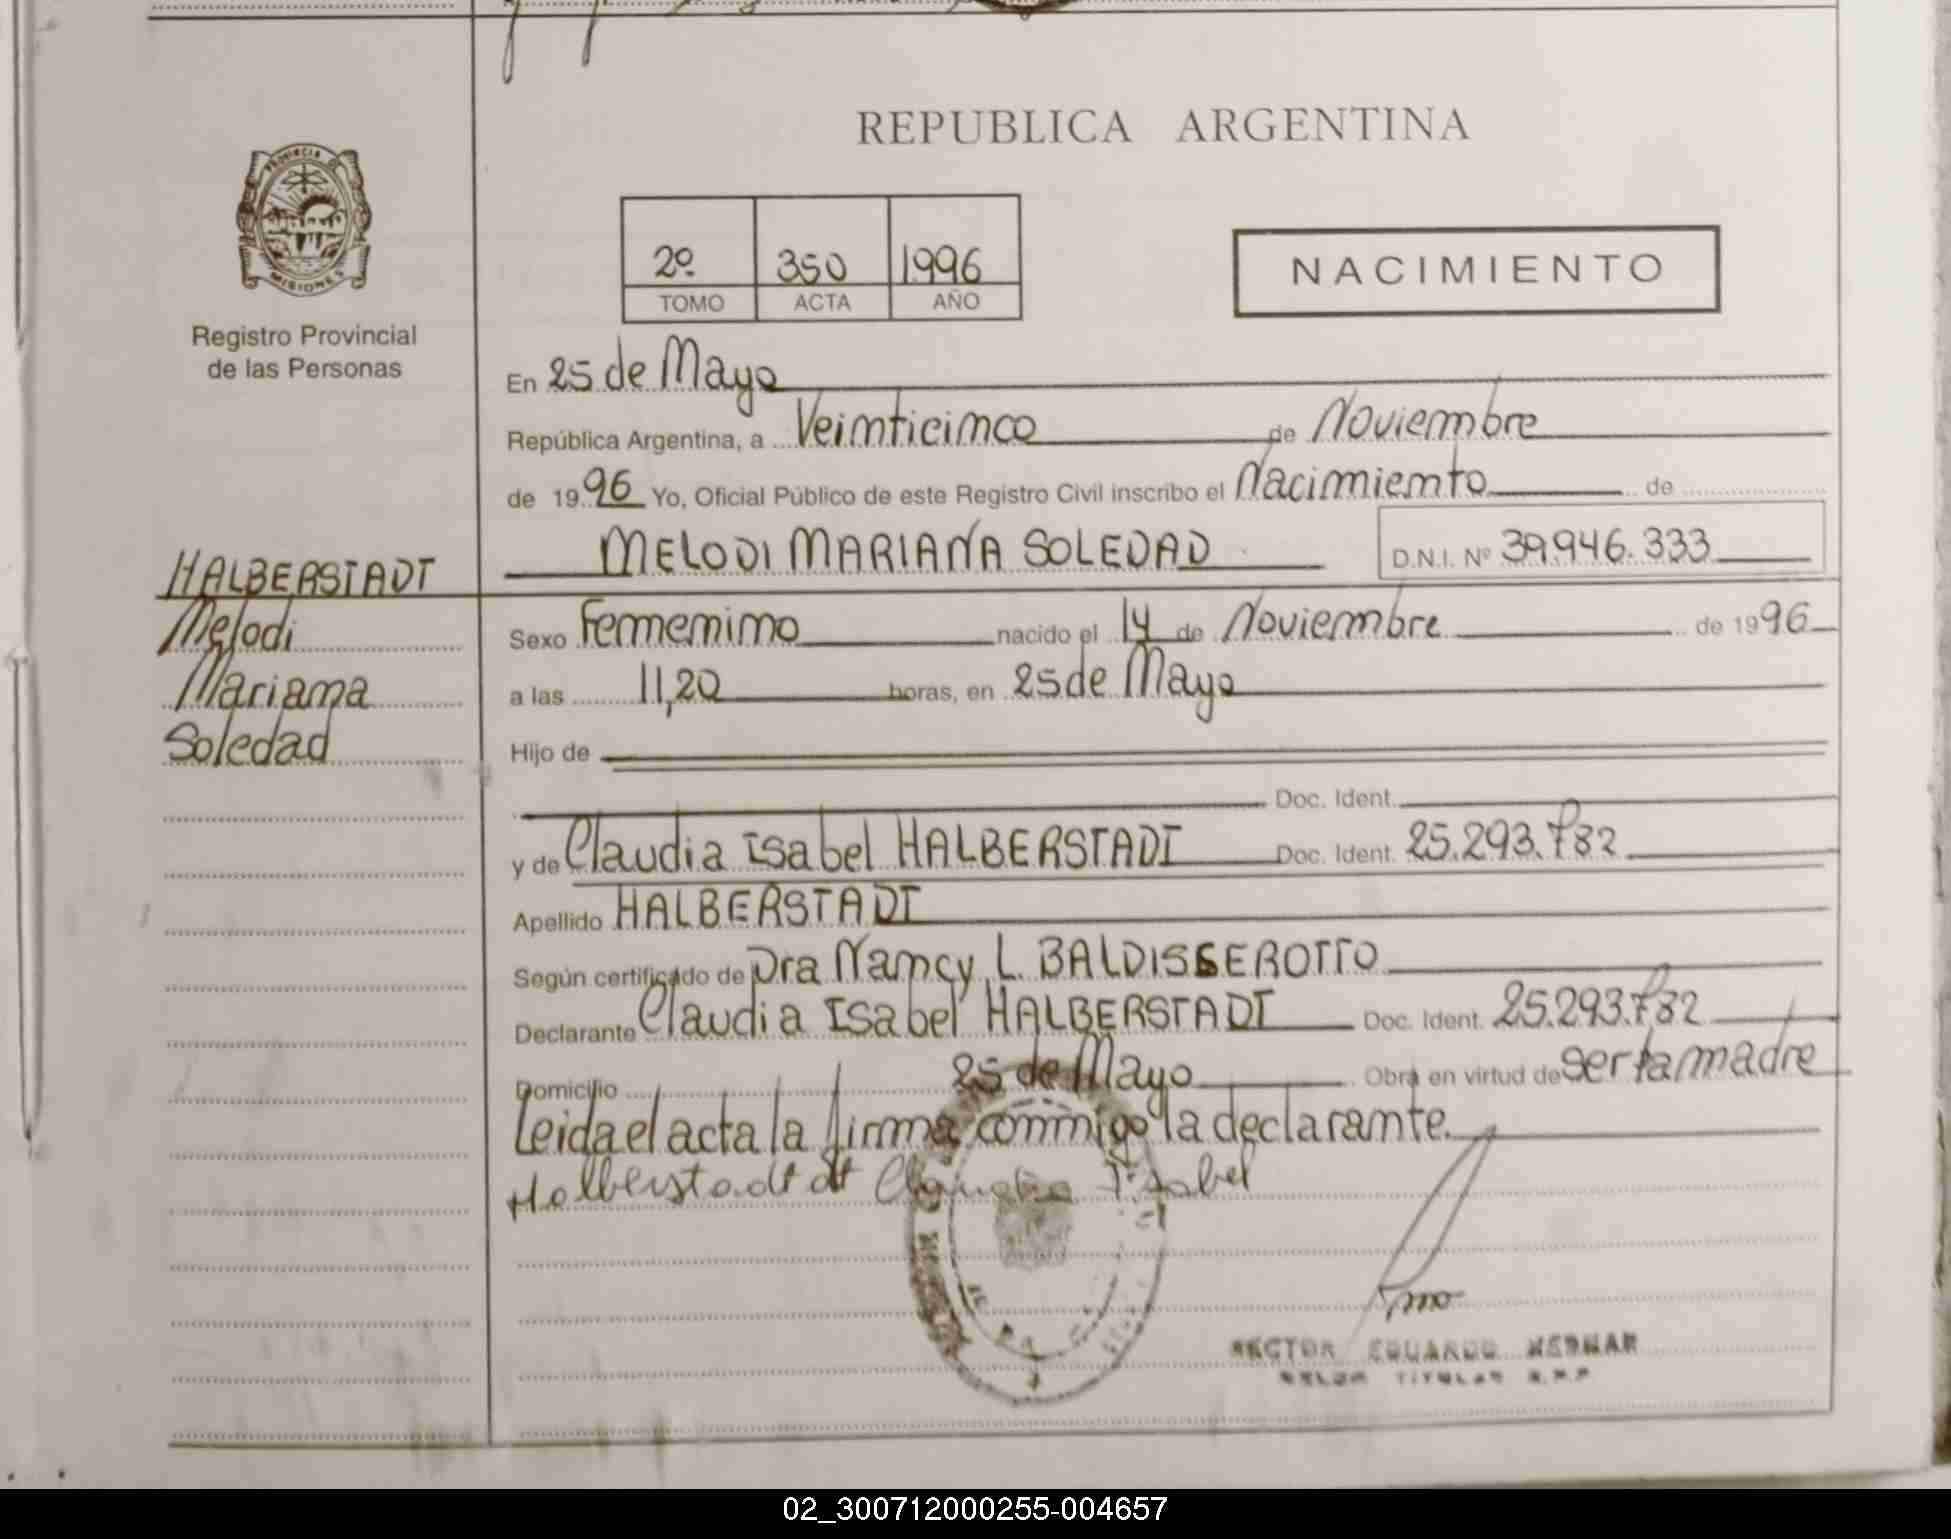 REPUBLICA ARGENTINA
PROVINCIA DE MISIONES
Registro Provincial
de las Personas
2º 350 1996
TOMO ACTA AÑO
NACIMIENTO
En 25 de Mayo
República Argentina, a Veinticinco de Noviembre
de 1996 Yo, Oficial Público de este Registro Civil inscribo el Nacimiento de
MELODI MARIANA SOLEDAD D.N.I. Nº 39.946.333
HALBERSTADT
Melodi
Mariana
Soledad
Sexo Femenino nacido el 14 de Noviembre de 1996
a las 11,20 horas, en 25 de Mayo
Hijo de
Doc. Ident.
y de Claudia Isabel HALBERSTADT Doc. Ident. 25.293.782
Apellido HALBERSTADT
Según certificado de Dra Nancy L. BALDISSEROTTO
Declarante Claudia Isabel HALBERSTADT Doc. Ident. 25.293.782
Domicilio 25 de Mayo Obra en virtud de ser la madre
Leida el acta la firma conmigo la declarante.
Halberstadt Claudia Isabel
EDUARDO
TITULAR
02_300712000255-004657